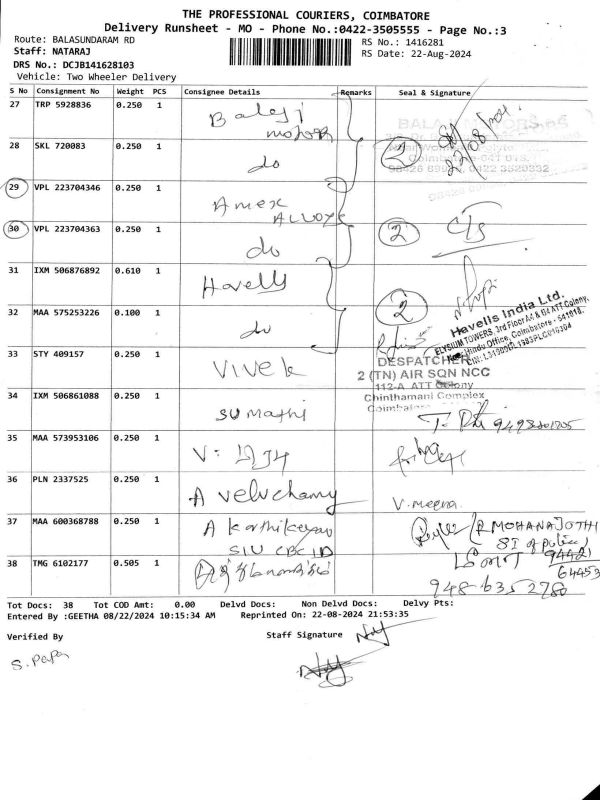 THE PROFESSIONAL COURIERS, COIMBATORE
Delivery Runsheet - MO - Phone No.:0422-3505555 - Page No.:3
Route: BALASUNDARAM RD
RS No.: 1416281
Staff: NATARAJ
RS Date: 22-Aug-2024
DRS No.: DCJB141628103
Vehicle: Two Wheeler Delivery
S No Consignment No Weight PCS Consignee Details Remarks Seal & Signature
27 TRP 5928836 0.250 1 Balaji motors
22/08/2024
28 SKL 720083 0.250 1 do 2
29 VPL 223704346 0.250 1 Amex Alloys
30 VPL 223704363 0.250 1 do 2
31 IXM 506876892 0.610 1 Havells
32 MAA 575253226 0.100 1 do 2
Havells India Ltd.
ELYSIUM TOWERS, 3rd Floor A4 & B4 ATT Colony,
Hindu Office, Coimbatore - 641018.
33 STY 409157 0.250 1 Vivek
DESPATCHER
2 (TN) AIR SQN NCC
112-A ATT Colony
Chinthamani Complex
Coimbatore
34 IXM 506861088 0.250 1 Sumathi
35 MAA 573953106 0.250 1
36 PLN 2337525 0.250 1 A Veluchamy V. meena
37 MAA 600368788 0.250 1 A Karthikeyan
SIU CBCID
(P MOHANAJOTHI
SI of police)
94421
64453
38 TMG 6102177 0.505 1
948-635 2780
Tot Docs: 38 Tot COD Amt: 0.00 Delvd Docs: Non Delvd Docs: Delvy Pts:
Entered By :GEETHA 08/22/2024 10:15:34 AM Reprinted On: 22-08-2024 21:53:35
Verified By Staff Signature
S. Papa